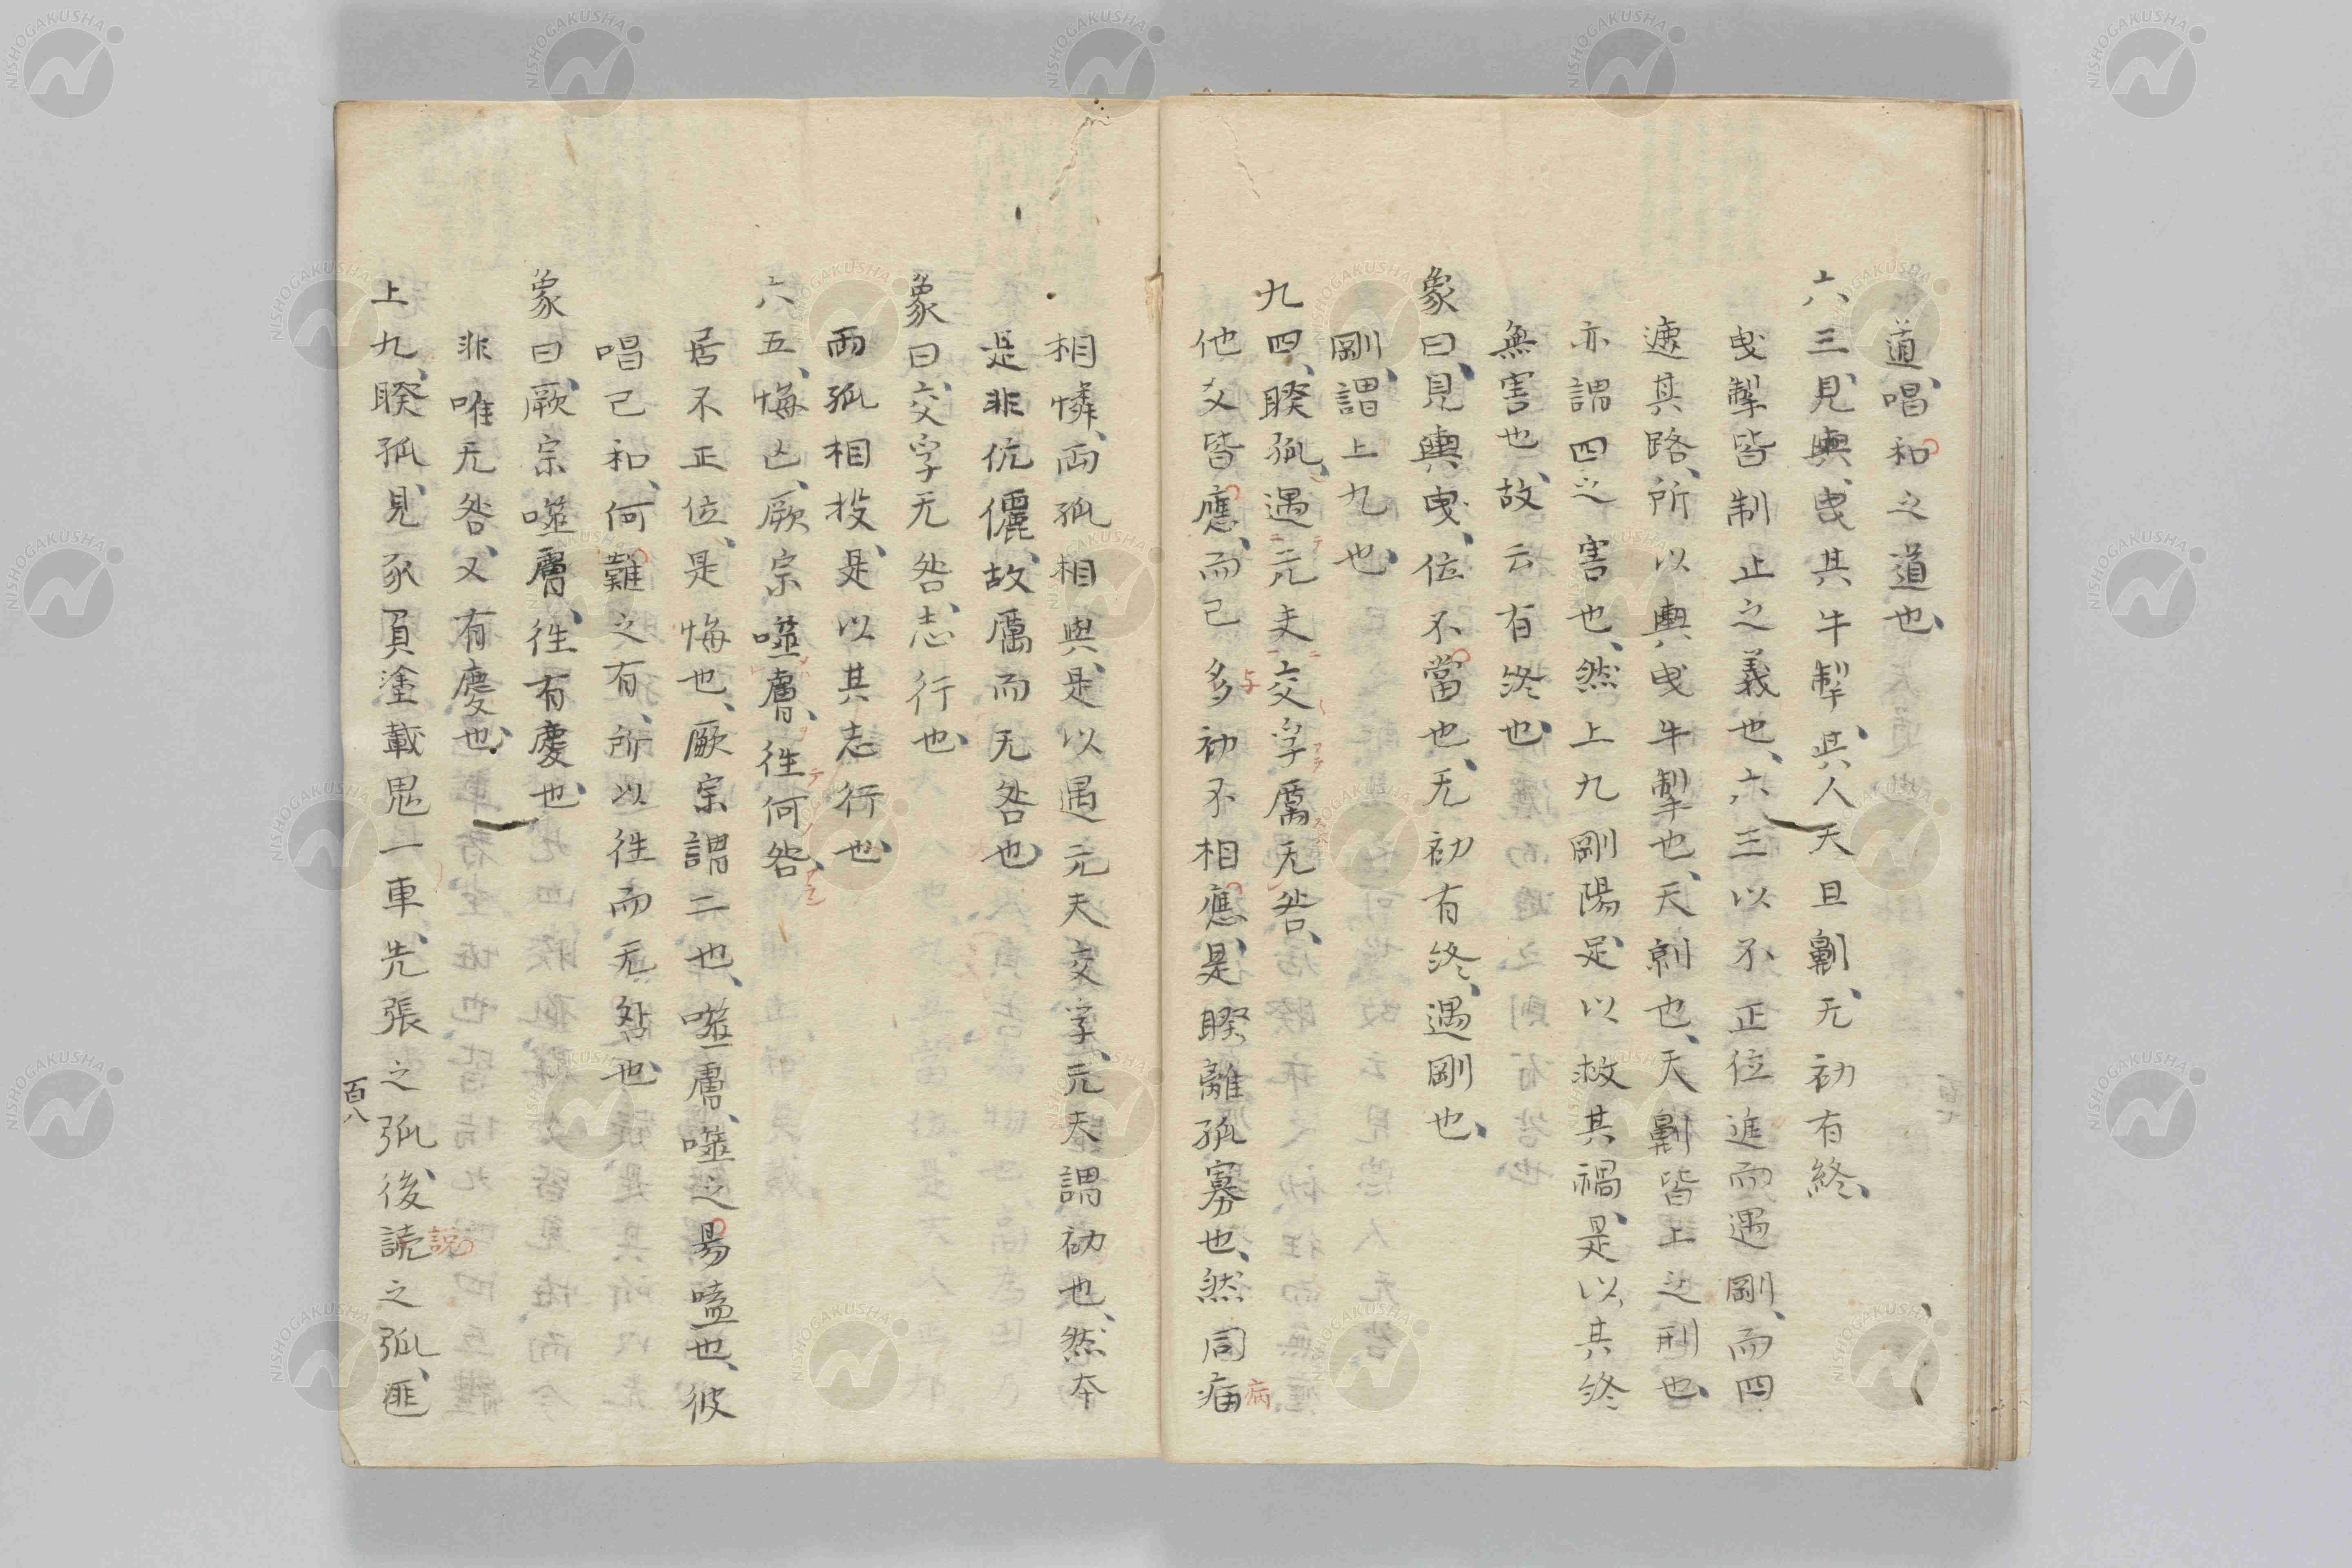 道、唱和之道也、
六三、見輿、曳其牛掣、其人天且劓、无初有終、
曳掣皆制止之義也、六三以不正位進而遇剛、而四
遽其路、所以輿曳牛掣也、天剠也、天劓皆上之刑也、
亦謂四之害也、然上九剛陽足以救其禍、是以其終
無害也、故云有終也、
象曰、見輿曳、位不當也、无初有終、遇剛也、
剛、謂上九也、
九四、睽孤、遇元夫、交孚厲无咎、
他爻皆應、而己多初不相應、是睽離孤寡也、然同病
病
相憐、両孤相與、是以遇元夫交孚、元夫謂初也、然本
是非伉儷、故厲而无咎也、
象曰、交孚无咎、志行也、
両孤相投、是以其志行也、
六五、悔亡、厥宗噬膚、往何咎、
居不正位、是悔也、厥宗謂二也、噬膚、噬之易嗑也、彼
唱己和、何難之有、所以往而无咎也、
象曰、厥宗噬膚、往有慶也、
非唯无咎、又有慶也、
上九、睽孤、見豕負塗載鬼一車、先張之弧後、読之弧、匪
説
百八